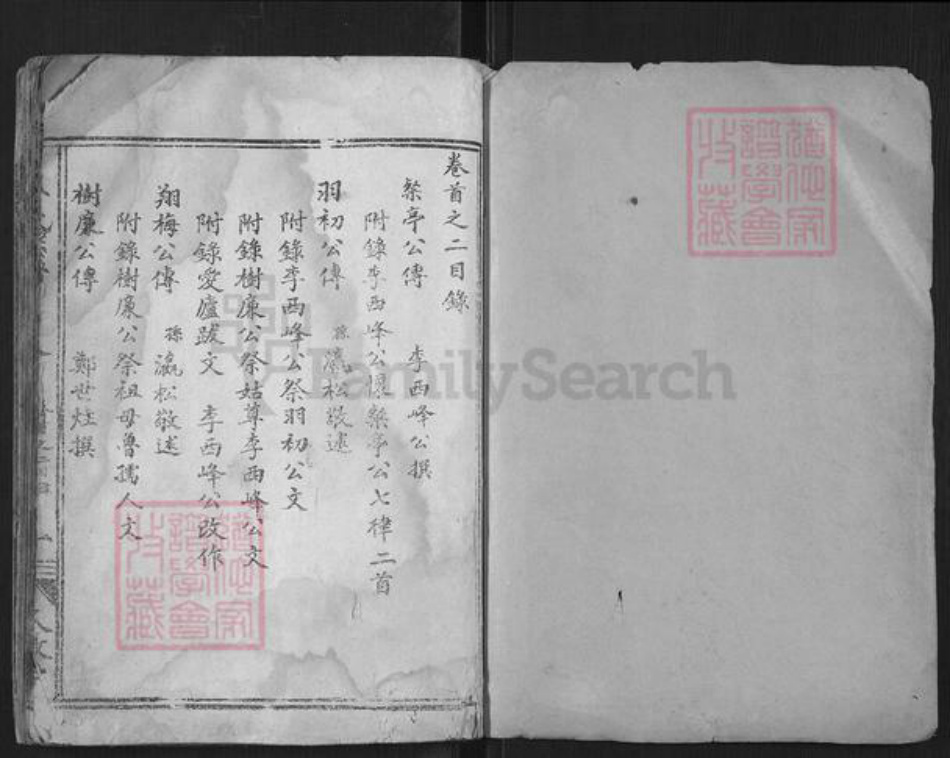 卷首之二目錄
粲亭公傳 李西峰公撰
附錄李西峰公懷粲亭公七律二首
羽初公傳 孫瀛松敬述
附錄李西峰公祭羽初公文
附錄樹廉公祭姑尊李西峰公文
附錄愛廬跋文 李西峰公改作
翔梅公傳 孫瀛松敬述
附錄樹廉公祭祖母魯孺人文
樹廉公傳 鄭世炷撰
譜學會
收藏
譜學會
收藏
FamilySearch